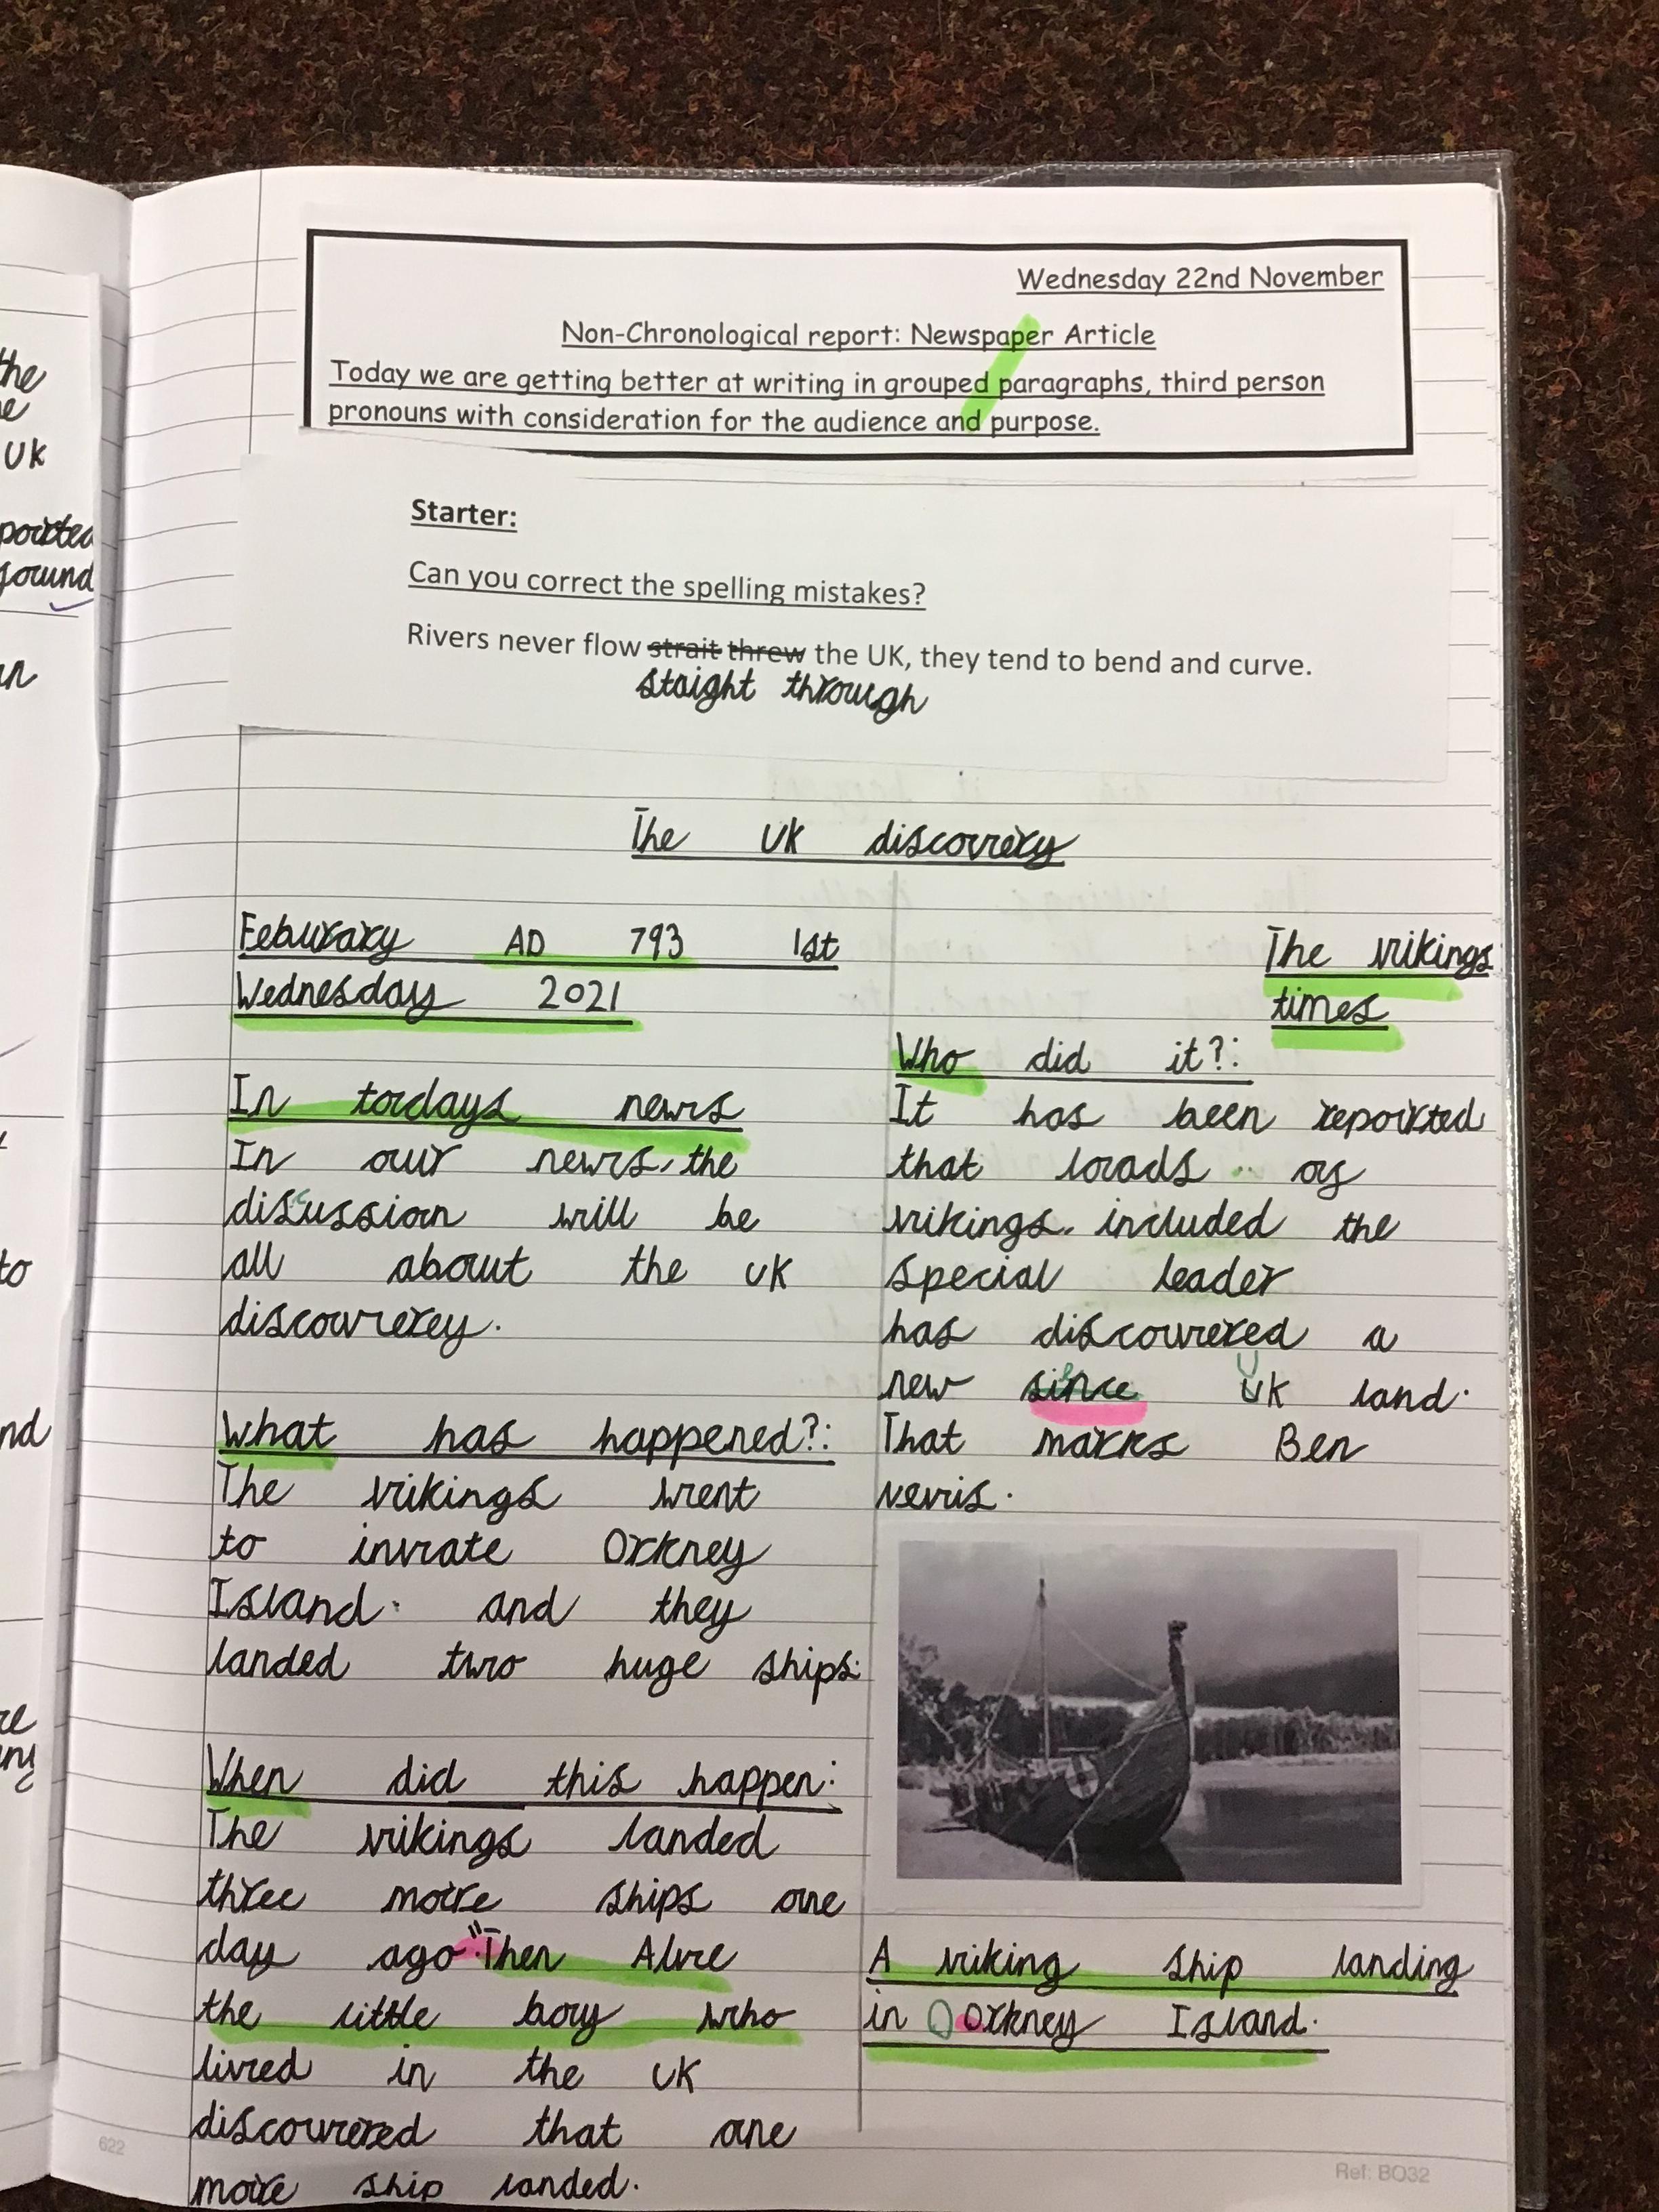 the
e
UK
ported
sound
in
to
nd
re
Wednesday 22nd November
Non-Chronological report: Newspaper Article
Today we are getting better at writing in grouped paragraphs, third person
pronouns with consideration for the audience and purpose.
Starter:
Can you correct the spelling mistakes?
Rivers never flow strait threw the UK, they tend to bend and curve.
staight through
The UK discovery
Feburary AD 793 1st
Wednesday 2021
In todays news
In our news, the
discussion will be
all about the UK
discoverey.
What has happened?:
The vikings went
to invate Orkney
Island. and they
landed two huge ships.
When did this happen:
The vikings landed
three more ships one
day ago "Then Alve
the little boy who
lived in the UK
discovered that one
more ship landed.
The vikings
times
Who did it?:
It has been reported
that loads of
vikings. included the
special leader
has discovered a
new since UK land.
That marks Ben
Nevis.
A viking ship landing
in Orkney Island.
622
Ref: BO32